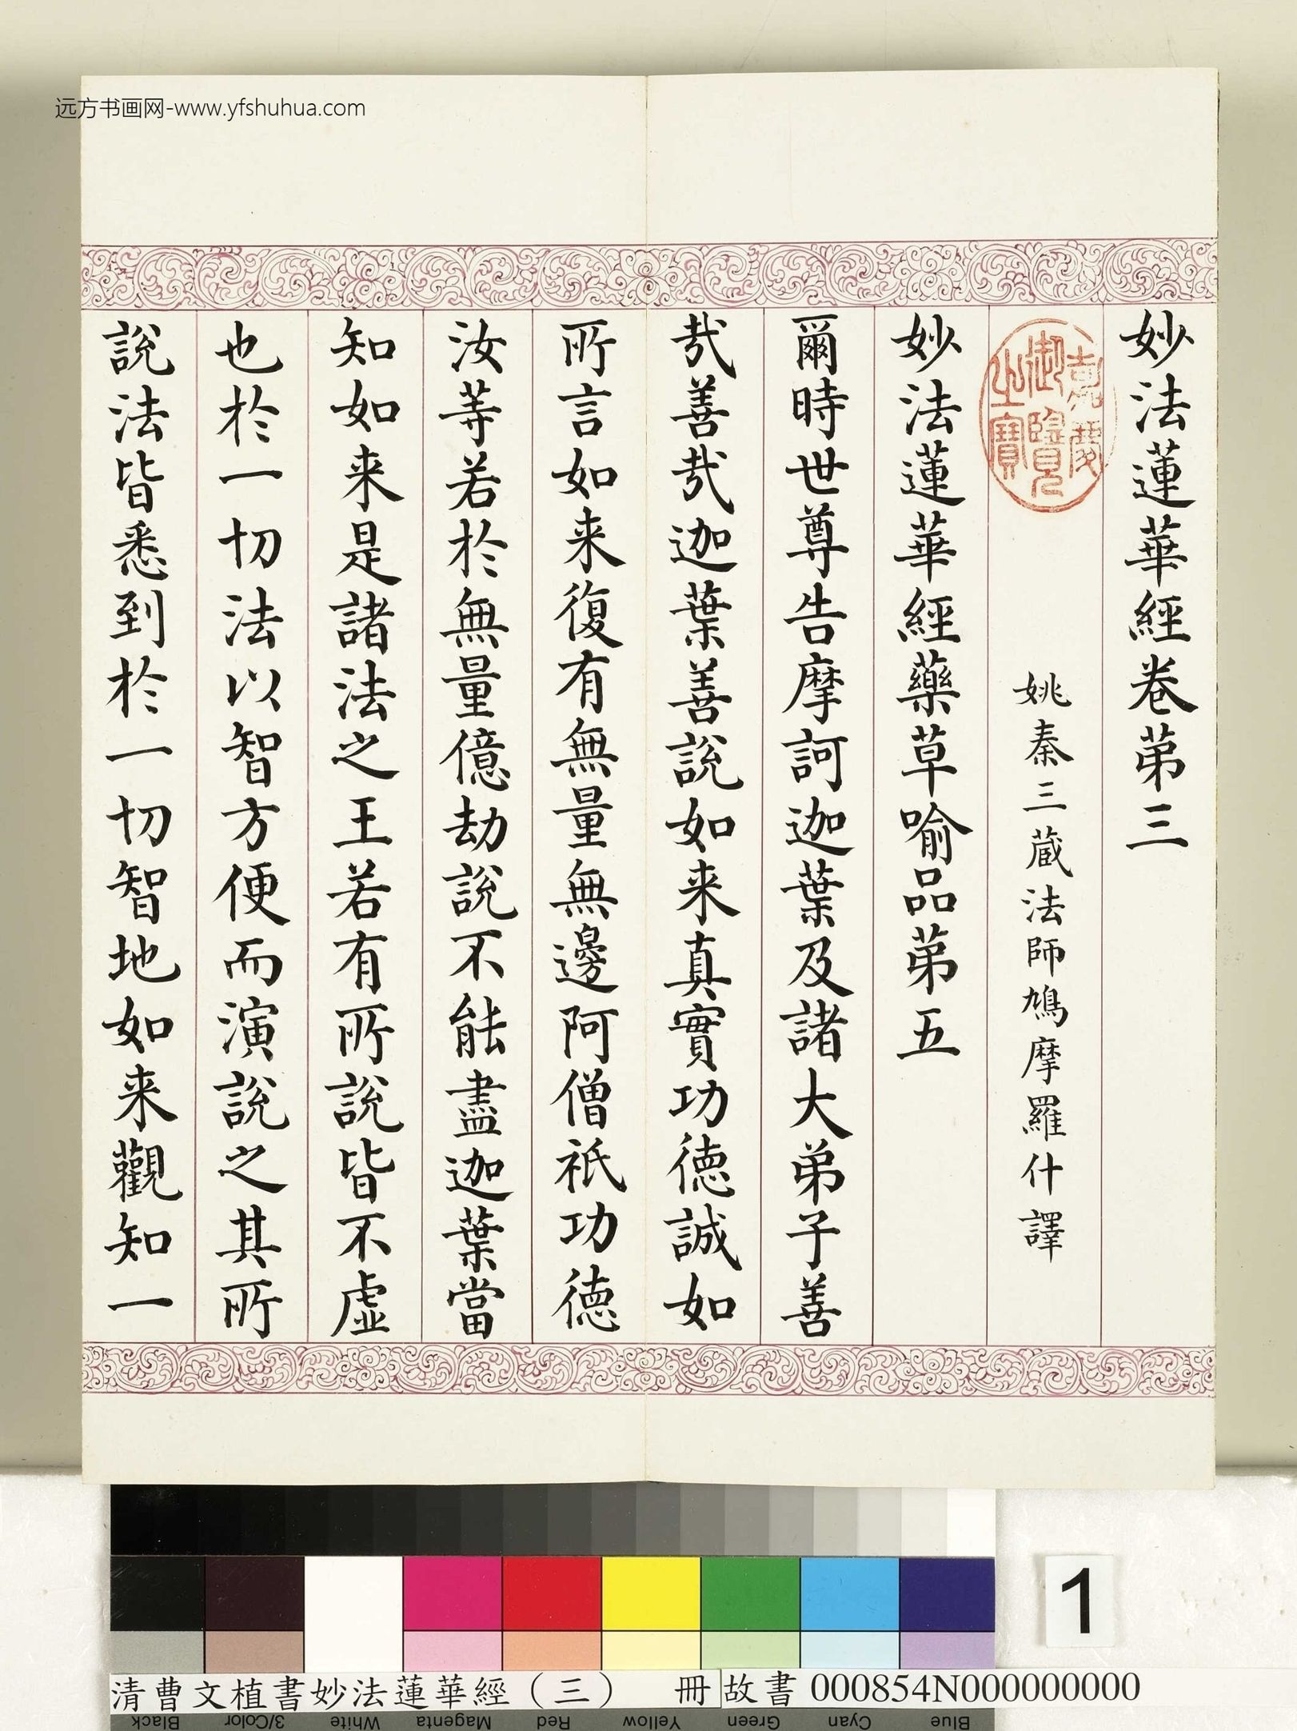 远方书画网-www.yfshuhua.com
妙法蓮華經卷苐三
嘉慶御覽之寶
姚秦三蔵法師鳩摩羅什譯
妙法蓮華經藥草喻品苐五
爾時世尊告摩訶迦葉及諸大弟子善
㢤善㢤迦葉善說如来真實功徳誠如
所言如来復有無量無邊阿僧祇功徳
汝等若於無量億劫說不能盡迦葉當
知如来是諸法之王若有所說皆不虛
也於一切法以智方便而演說之其所
說法皆悉到於一切智地如来觀知一
1
清曹文植書妙法蓮華經(三) 冊 故書 000854N000000000
Black 3/Color White Magenta Red Yellow Green Cyan Blue